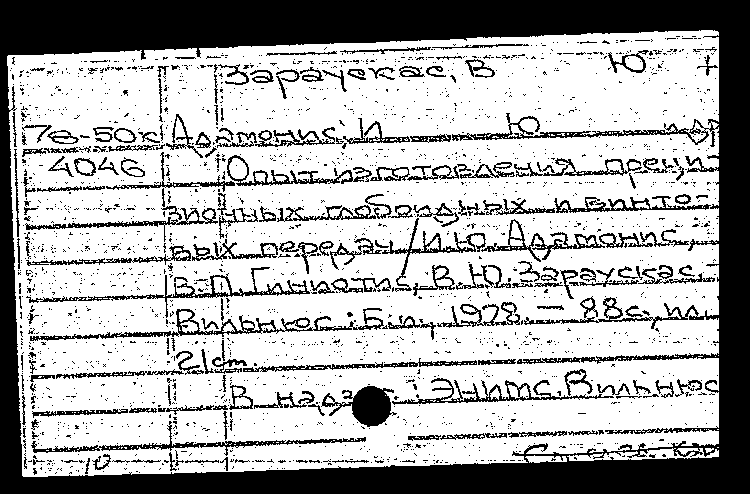 Зараускас, В Ю +
7в-50к Адамонис, И Ю и др
4046 Опыт изготовления преци-
зионных глобоидных и винто-
вых передач / И.Ю. Адамонис,
В.П. Гиниотис, В.Ю. Зараускас. -
Вильнюс : Б.и., 1978. — 88 с., ил.
21 cm.
В надзаг.: ЭНИМС. Вильнюс
10